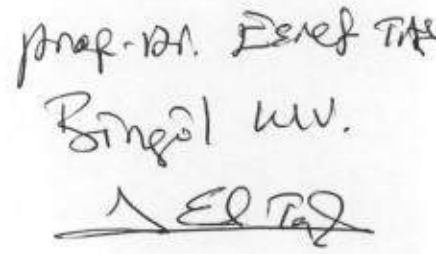 Prof. Dr. Eşref TAŞ
Bingöl Üniv.